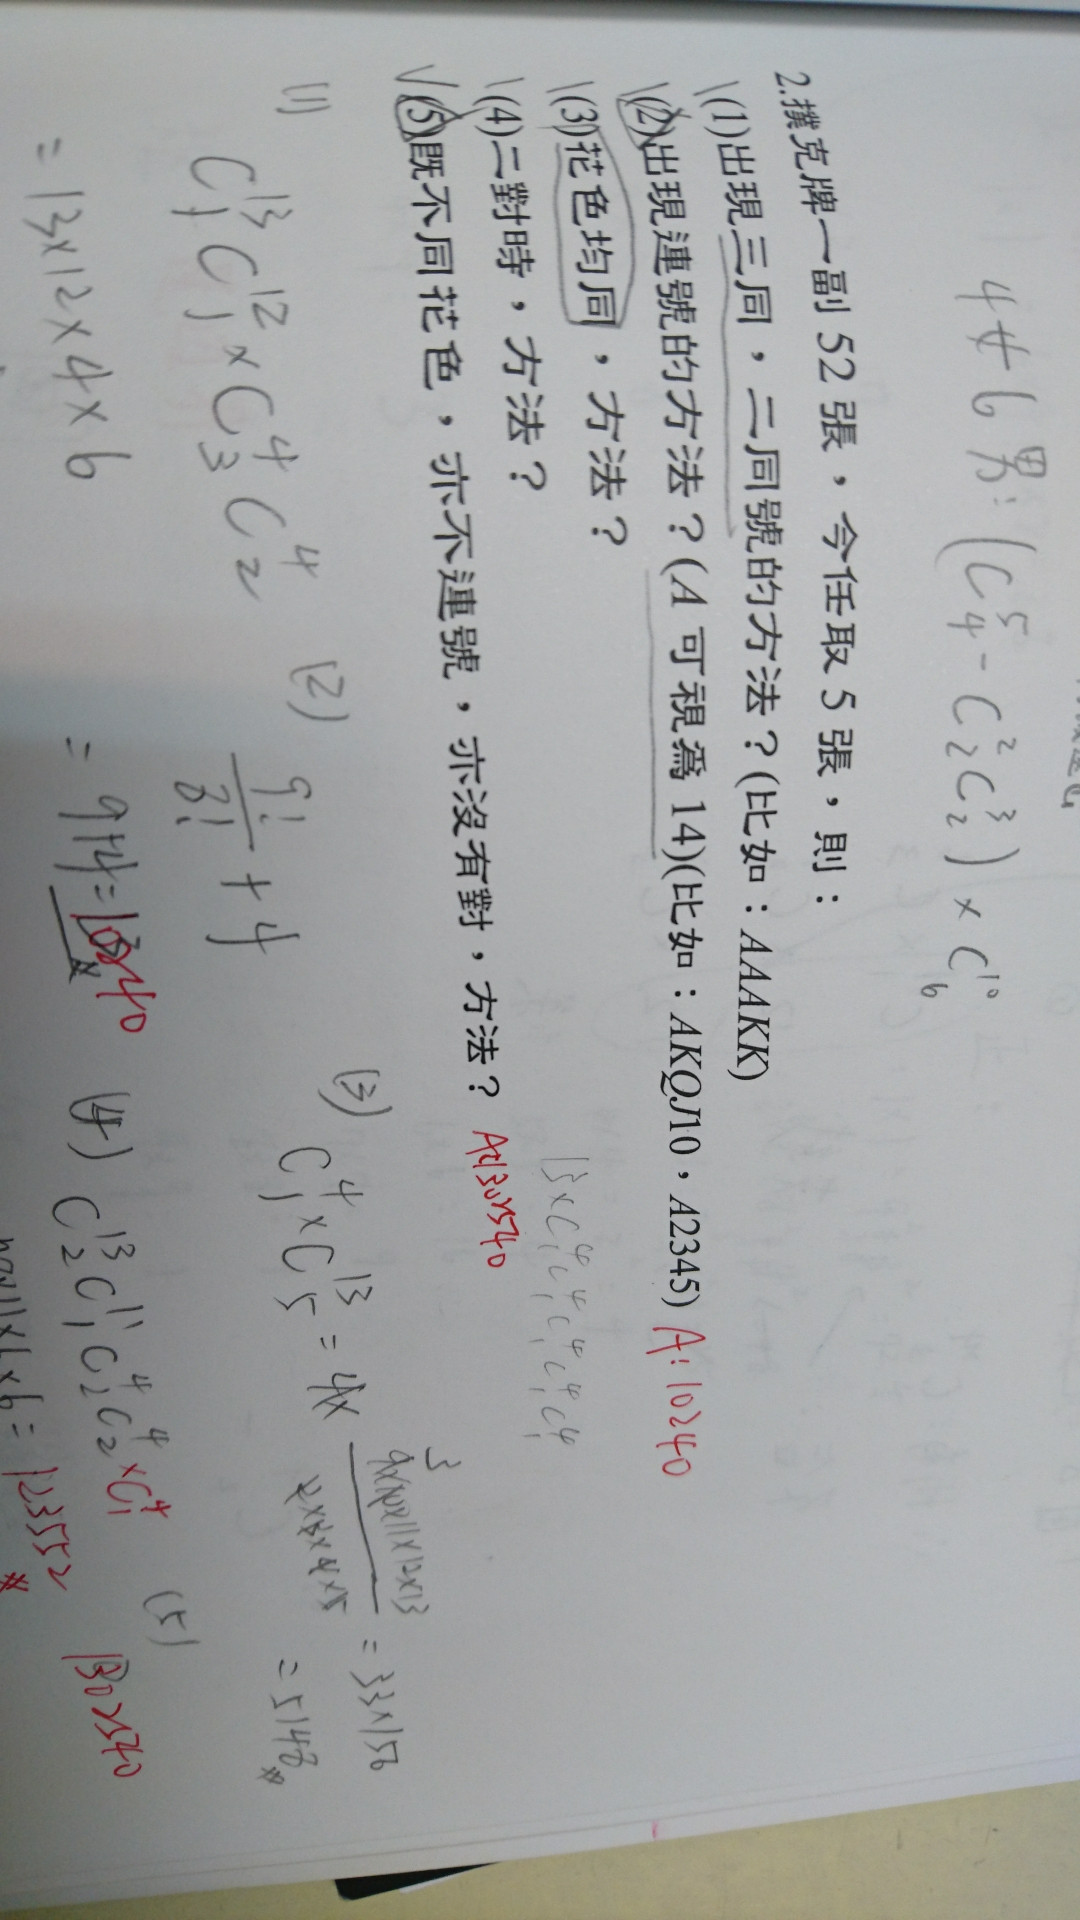 4女6男：(C⁵₄ - C²₂C³₂) × C¹⁰₆
2.撲克牌一副 52 張，今任取 5 張，則：
(1)出現三同，二同號的方法？(比如：AAAKK)
(2)出現連號的方法？(A 可視為 14)(比如：AKQJ10，A2345) A：10240
(3)花色均同，方法？
13×C⁴₁C⁴₁C⁴₁C⁴₁
(4)二對時，方法？
(5)既不同花色，亦不連號，亦沒有對，方法？ A：1302540
(1) C¹³₁C¹²₁×C⁴₃C⁴₂
= 13×12×4×6
(2) 9!/8! + 4
= 9+4=
10240
(3) C⁴₁×C¹³₅ = 4×
9×10×11×12×13
= 33×156
= 5148
(4) C¹³₂C¹¹₁C⁴₂C⁴₂×C⁴₁
= 123552
(5)
1302540